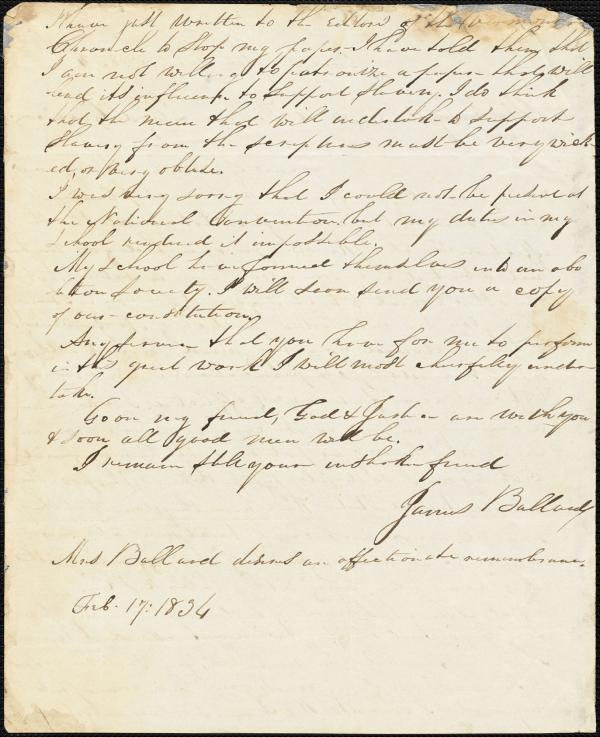 I have just written to the Editors of the Vermont
Chronicle to stop my paper. I have told them that
I am not willing to patronize a paper that will
lend its influence to support Slavery. I do think
that the men that will undertake to support
Slavery from the scriptures must be very wick-
ed, or very obtuse.
I was very sorry that I could not be present at
the National Convention. but my duties in my
School rendered it impossible.
My school have formed themselves into an abo
lition Society. I will soon send you a copy
of our constitution,
Any service that you have for me to perform
in this great work I will most cheerfully under
take.
Go on my friend, God & Justice are with you
& soon all good men will be.
I remain still your unshaken friend
James Ballard
Mrs Ballard desires an affectionate remembrance.
Feb. 17: 1834